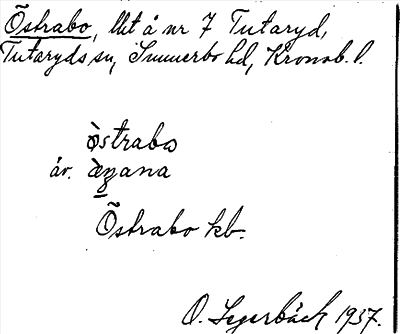 Östrabo, lht å nr 7 Tutaryd,
Tutaryds sn, Sunnerbo hd, Kronob. l.
östrabo
äv. àgana
Östrabo kb.
O. Segerbäck 1937.